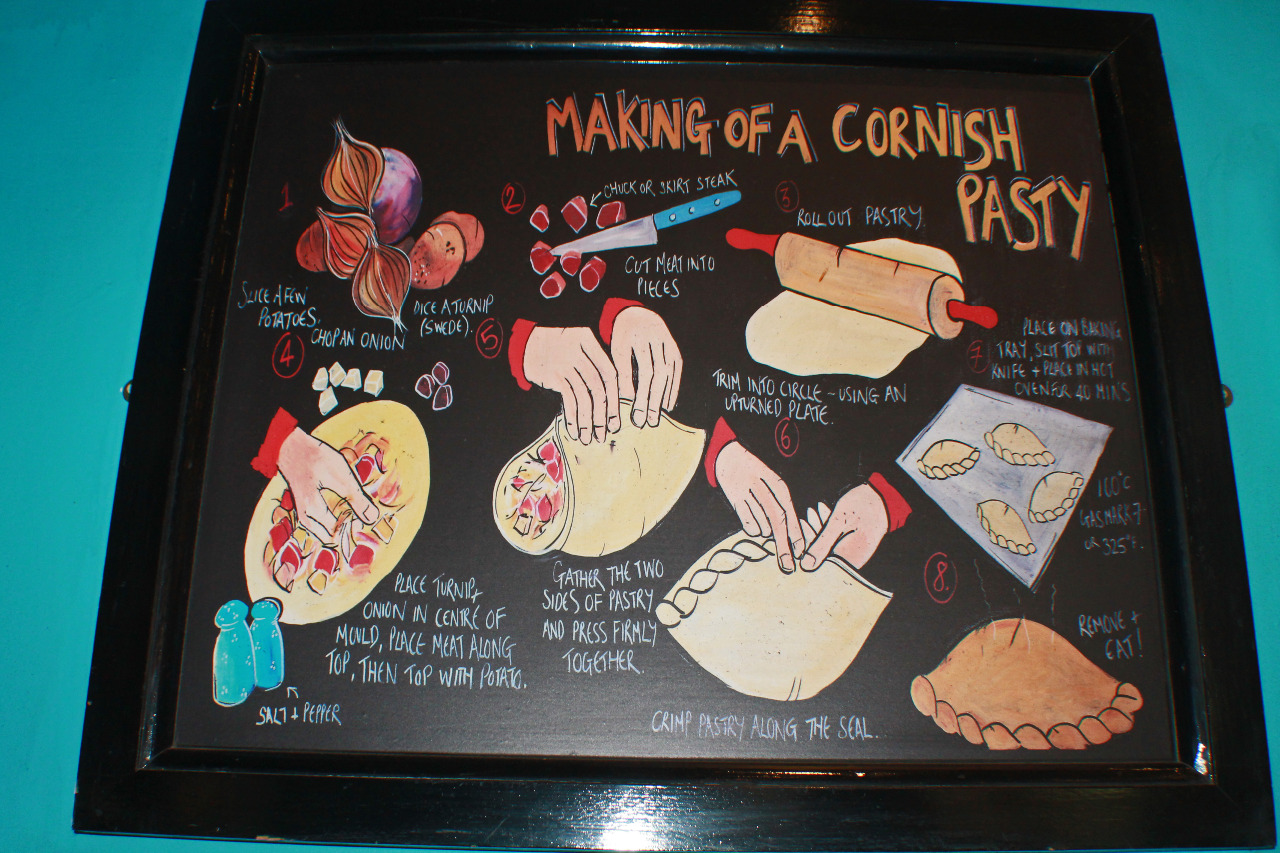 MAKING OF A CORNISH
PASTY
1
SLICE A FEW
POTATOES.
CHOP AN ONION
DICE A TURNIP
(SWEDE).
2
CHUCK OR SKIRT STEAK
CUT MEAT INTO
PIECES
3
ROLL OUT PASTRY.
TRIM INTO CIRCLE - USING AN
UPTURNED PLATE.
4
PLACE TURNIP +
ONION IN CENTRE OF
MOULD, PLACE MEAT ALONG
TOP, THEN TOP WITH POTATO.
SALT + PEPPER
5
GATHER THE TWO
SIDES OF PASTRY
AND PRESS FIRMLY
TOGETHER
6
CRIMP PASTRY ALONG THE SEAL.
7
PLACE ON BAKING
TRAY, SLIT TOP WITH
KNIFE + PLACE IN HOT
OVEN FOR 40 MIN'S
GAS MARK 7
OR 325°F.
8.
REMOVE +
EAT!